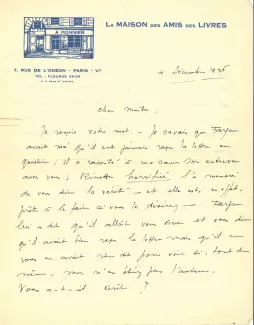 A. MONNIER
LA MAISON DES AMIS DES LIVRES
7, RUE DE L'ODÉON - PARIS - VIᵉ
TÉL : FLEURUS 25-05
4 Décembre 1926
cher maître
Je reçois votre mot - je savais que Fargue
avait nié qu'il eût jamais reçu la lettre en
question ; il a raconté à ma sœur son entrevue
avec vous ; Rinette horrifiée, l'a menacé
de vous dire la vérité - et elle est, en effet,
prête à le faire si vous le désirez - Fargue
lui a dit qu'il allait vous écrire et vous dire
qu'il avait bien reçu la lettre mais qu'il ne
vous en avait rien dit pour vous, tout de
même, vous n'en étiez pas l'auteur.
Vous a-t-il écrit ?